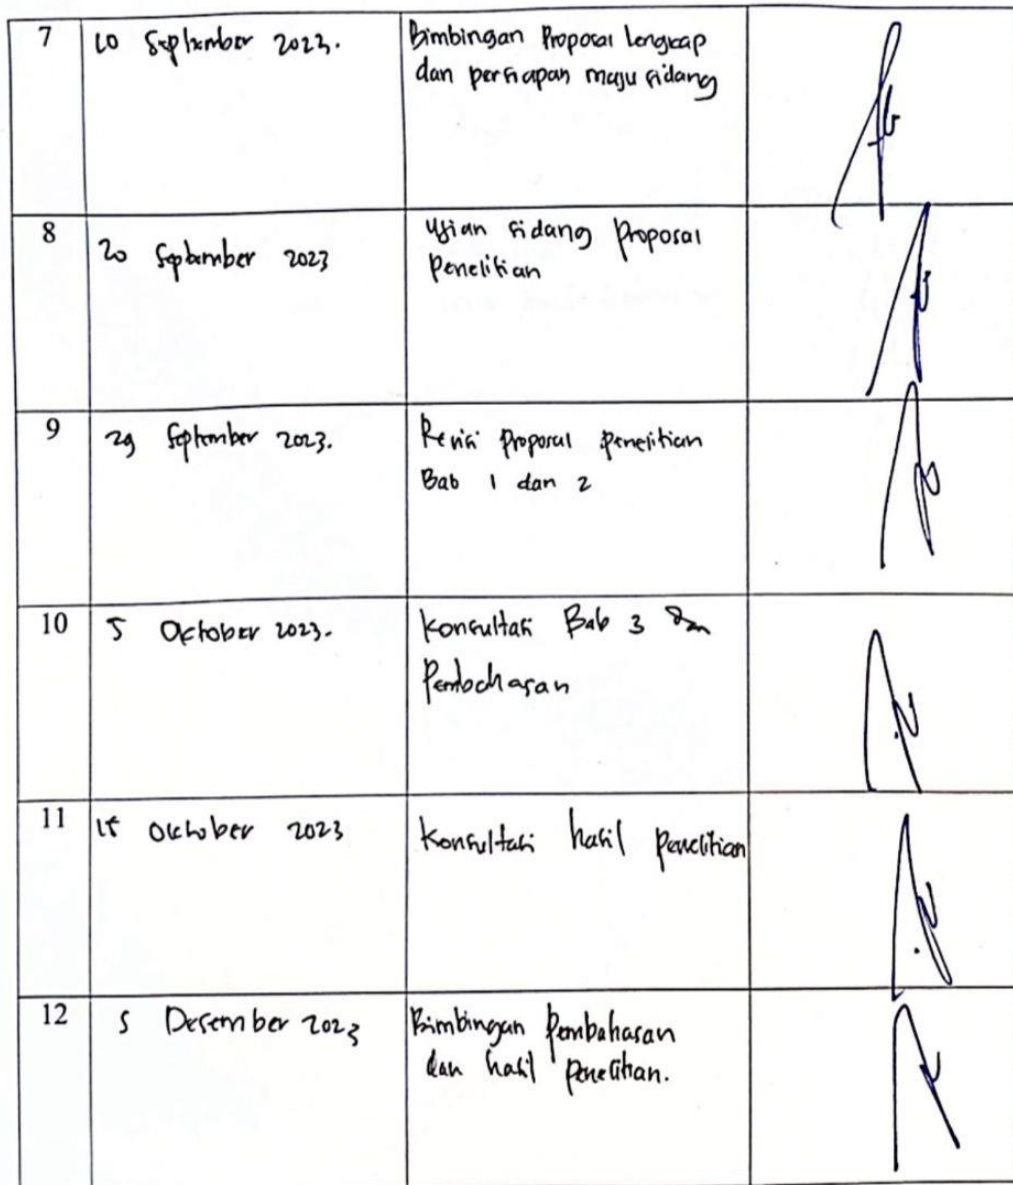 7
10 September 2023.
Bimbingan Proposal Lengkap
dan persiapan maju sidang
8
20 September 2023
Ujian sidang Proposal
Penelitian
9
29 September 2023.
Revisi Proposal penelitian
Bab 1 dan 2
10
5 Oktober 2023.
Konsultasi Bab 3 dan
Pembahasan
11
15 Oktober 2023
Konsultasi hasil penelitian
12
5 Desember 2023
Bimbingan Pembahasan
dan hasil penelitian.